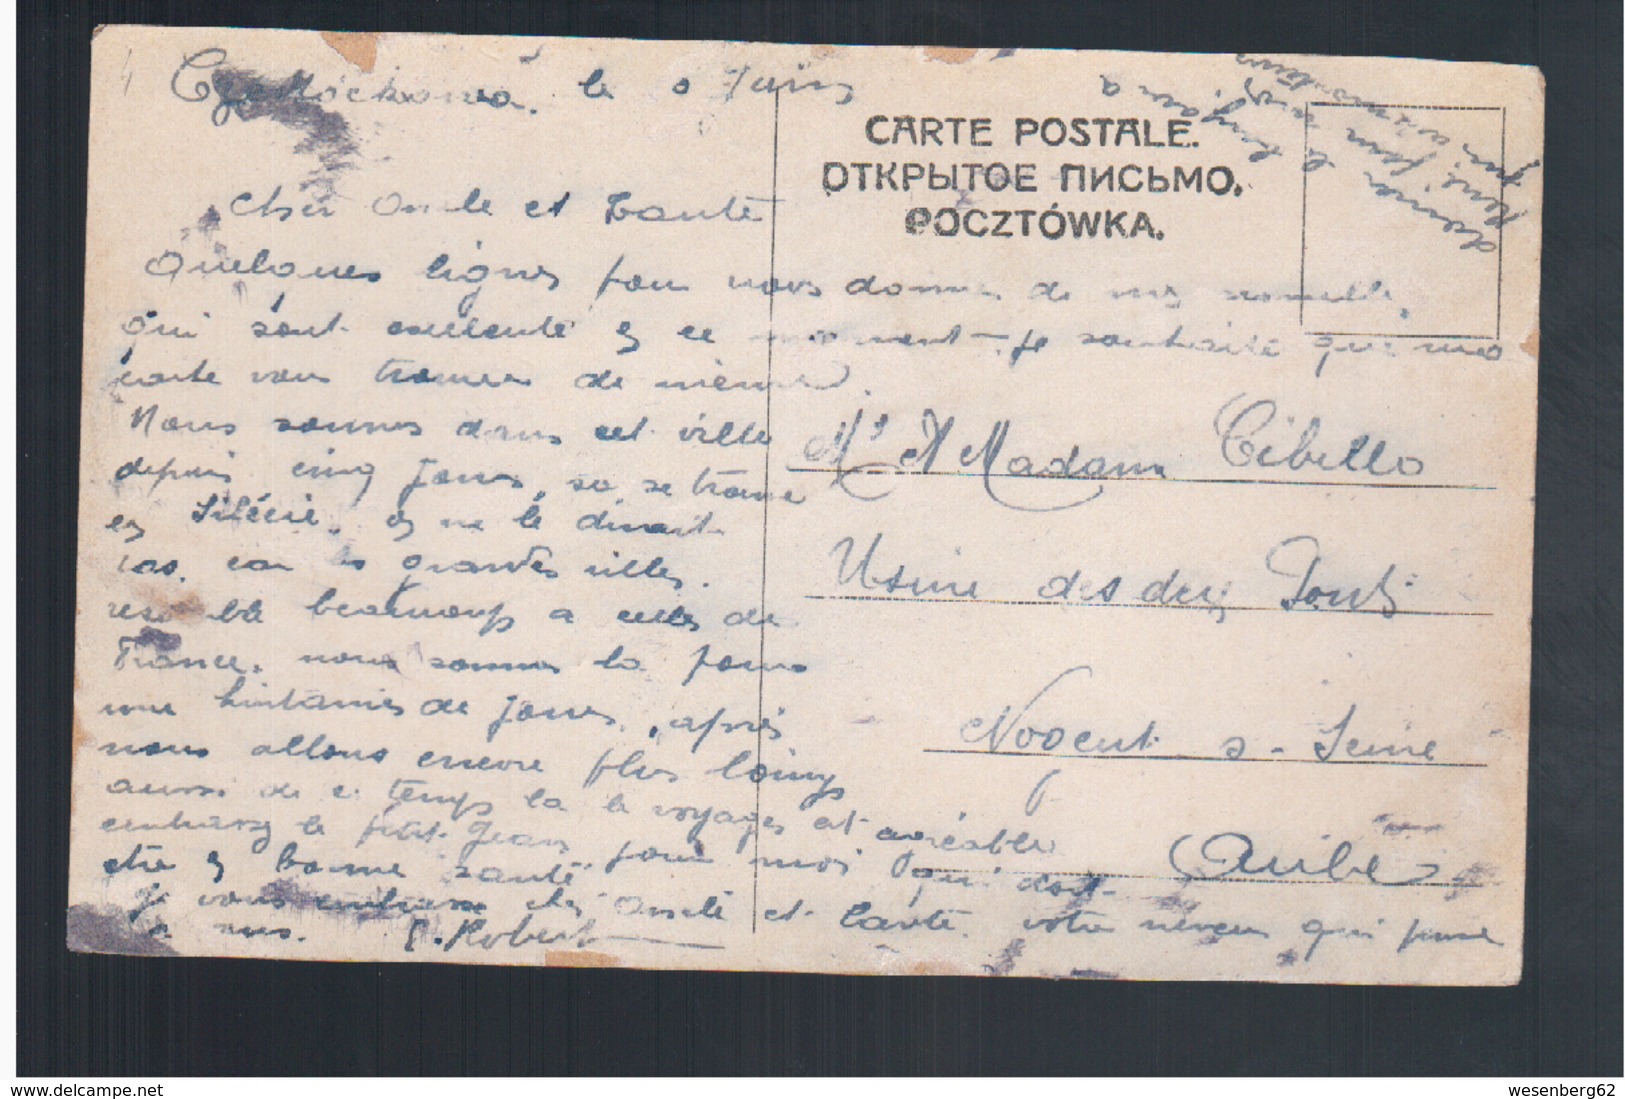 le Juin
CARTE POSTALE.
ОТКРЫТОЕ ПИСЬМО.
POCZTÓWKA.
Cher Oncle et Tante
Quelques lignes pour vous donner de mes nouvelle,
qui sont exelente en ce moment je souhaite que ma
carte vous trouvera de même.
Nous sommes dans cet ville
depuis cinq jours, sa se trouve
en Silésie. on ne le dirait
pas. car les grandes villes.
resemble beaucoup a celles de
France. nous sommes la pour
une de jours, après
nous allons encore plus loing
aussi de ce temps la le voyages est agréable
embrassez le petit Jean pour moi qui doit
etre en bonne santé.
je vous embrasse cher Oncle et tante. votre neveu qui pense
a vous. Robert
Mr et Madame Cibello
Usine des deux Ponts
Nogent s- Seine
(Aube)
www.delcampe.net
wesenberg62